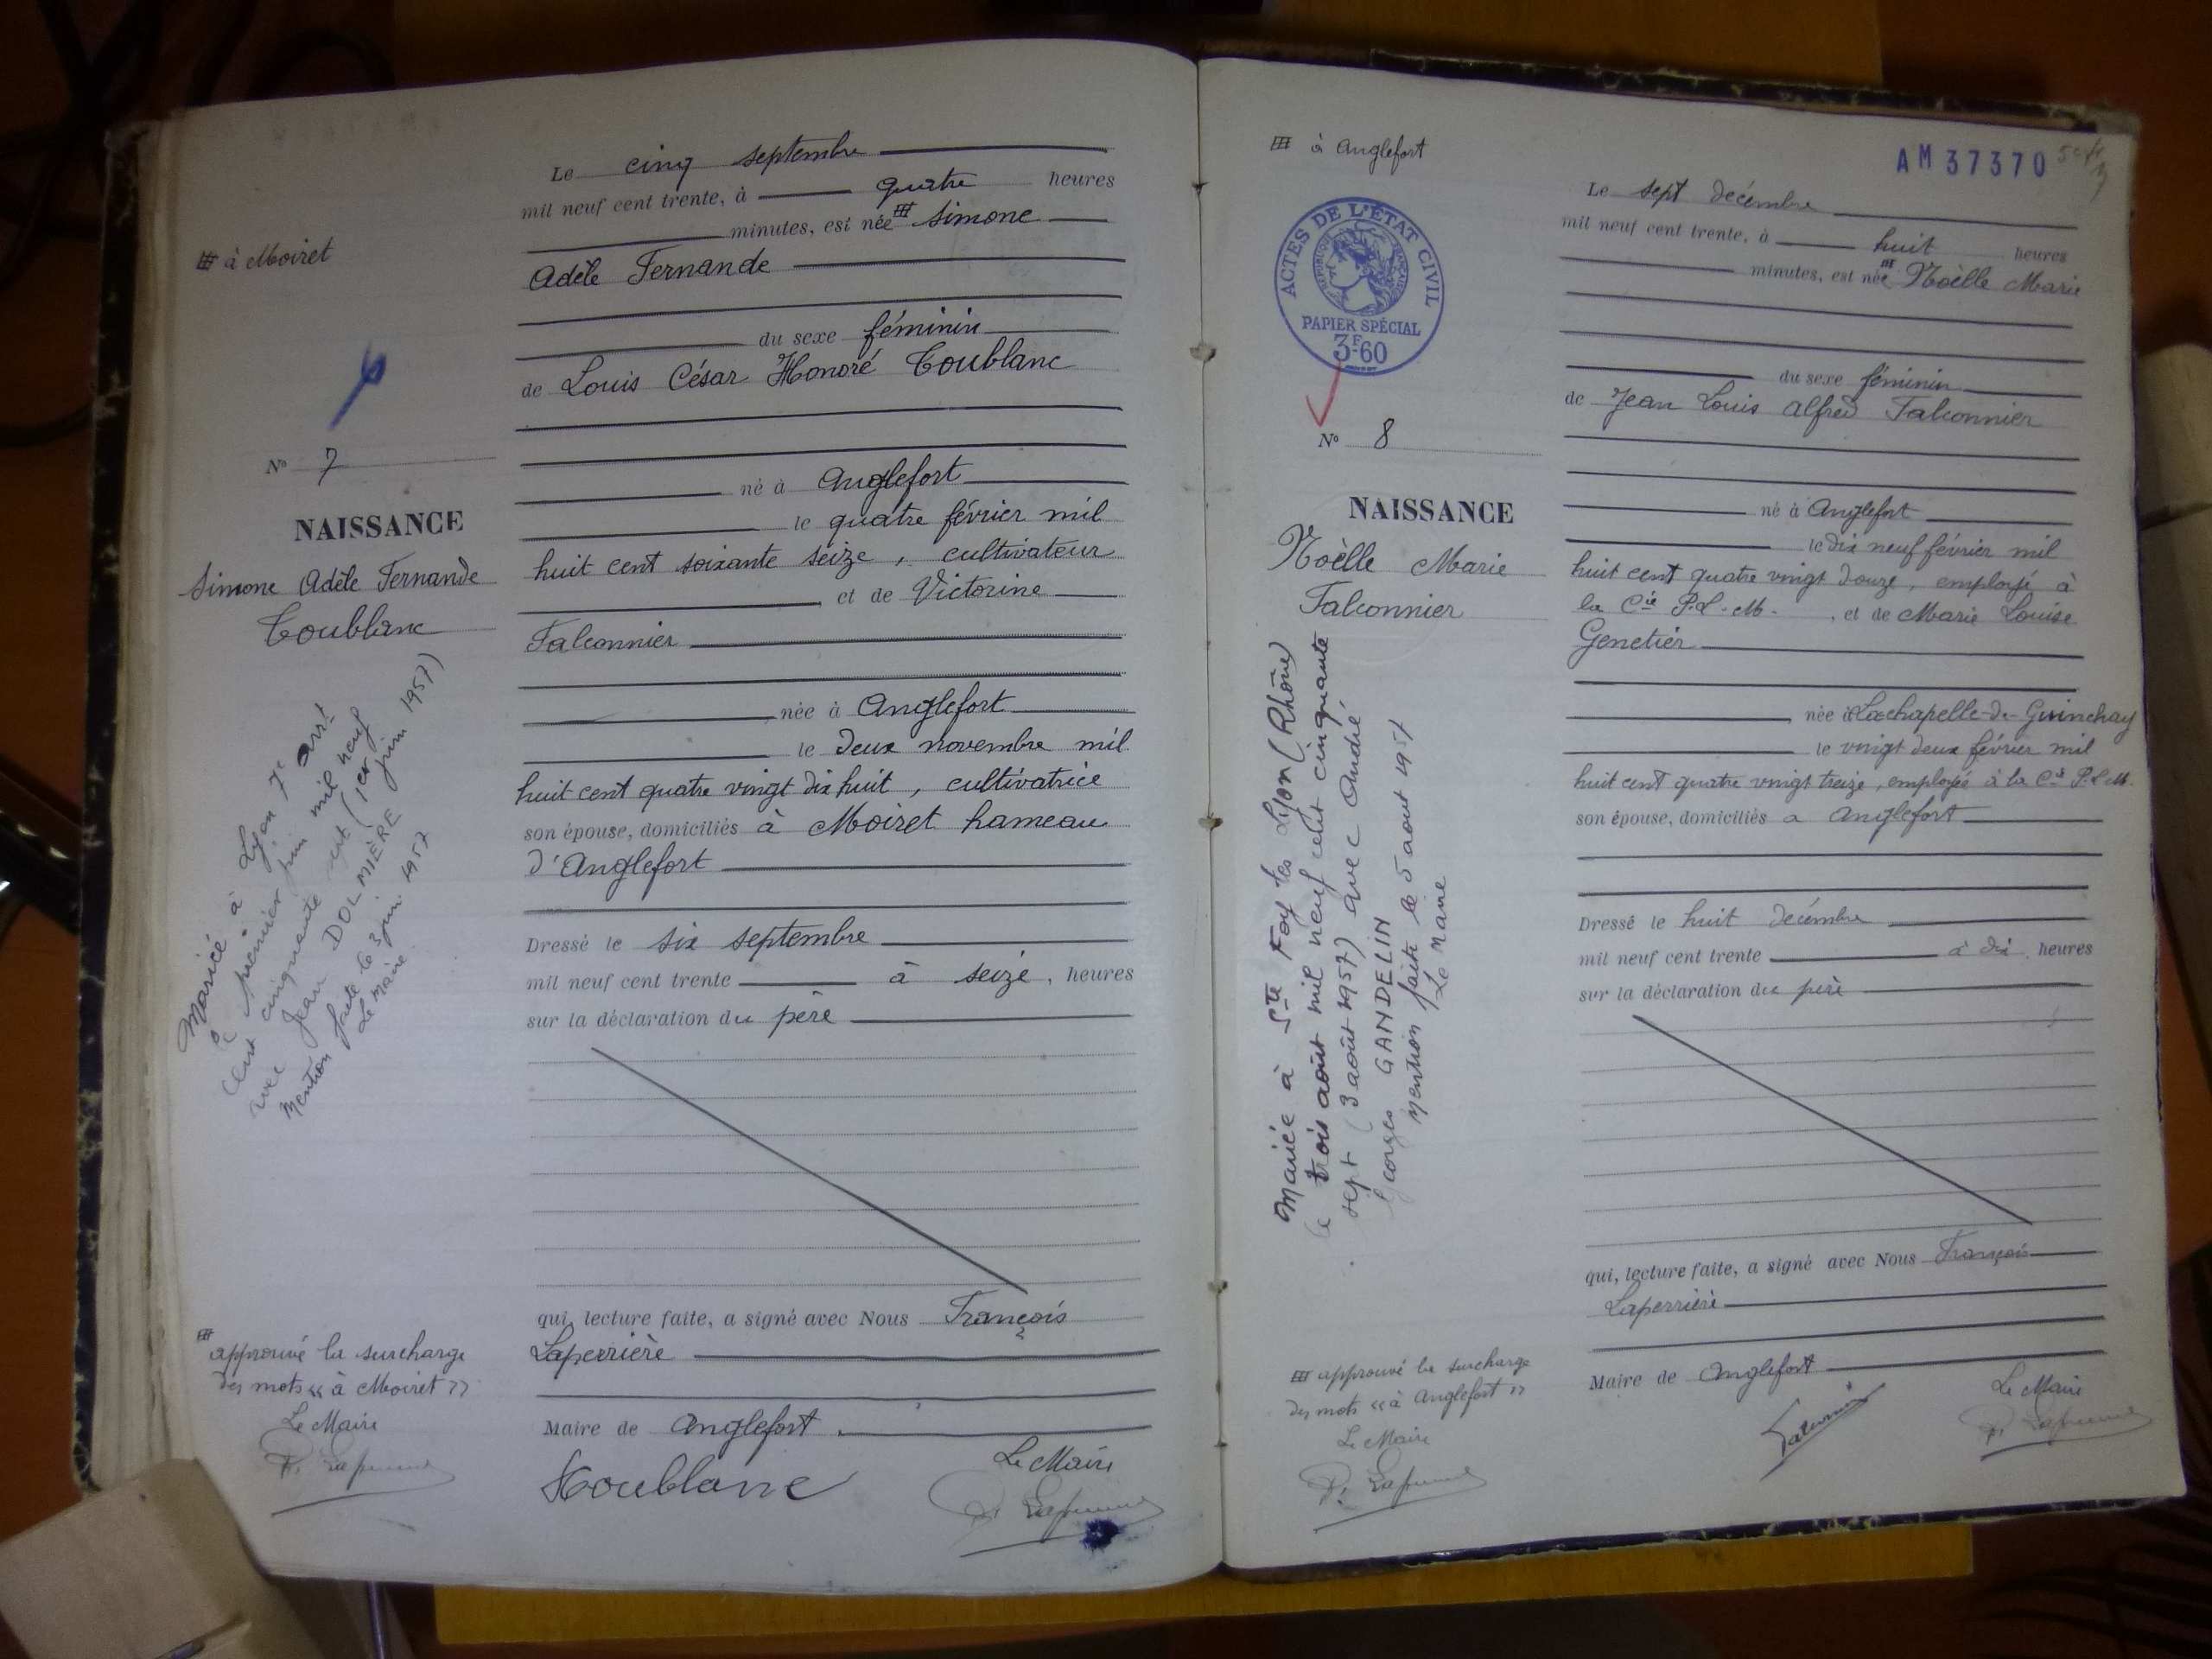 Le cinq septembre
mil neuf cent trente, à quatre heures
minutes, est née Simone
à Moiret
Adèle Fernande
du sexe féminin
de Louis César Honoré Toublanc
N° 7
né à Anglefort
le quatre février mil
huit cent soixante seize, cultivateur
et de Victorine
Falconnier
née à Anglefort
le deux novembre mil
huit cent quatre vingt dix huit, cultivatrice
son épouse, domiciliés à Moiret hameau
d'Anglefort
Dressé le six septembre
mil neuf cent trente à seize, heures
sur la déclaration du père
qui, lecture faite, a signé avec Nous François
Laperrière
Maire de Anglefort.
Toublanc
Le Maire
NAISSANCE
Simone Adèle Fernande
Toublanc
Mariée à Lyon 7e arrt
le premier juin mil neuf
cent cinquante sept (1er juin 1957)
avec Jean DOLMIÈRE
Mention faite le 3 juin 1957
Le Maire
approuvé la surcharge
des mots "à Moiret"
Le Maire
à Anglefort
AM 37370
ACTES DE L'ÉTAT CIVIL
RÉPUBLIQUE FRANÇAISE
PAPIER SPÉCIAL
3F60
Le sept décembre
mil neuf cent trente, à huit heures
minutes, est née Noèlle Marie
du sexe féminin
de Jean Louis Alfred Falconnier
né à Anglefort
le dix neuf février mil
huit cent quatre vingt douze, employé à
la Cie P.L.M., et de Marie Louise
Genetier
née à Lachapelle-de-Guinchay
le vingt deux février mil
huit cent quatre vingt treize, employée à la Cie P.L.M.
son épouse, domiciliés à Anglefort
Dressé le huit décembre
mil neuf cent trente à dix heures
sur la déclaration du père
qui, lecture faite, a signé avec Nous François
Laperrière
Maire de Anglefort
Le Maire
N° 8
NAISSANCE
Noèlle Marie
Falconnier
Mariée à Ste Foy les Lyon (Rhône)
le trois août mil neuf cent cinquante
sept (3 août 1957) avec André
Georges GANDELIN
Mention faite le 5 août 1957
Le Maire
approuvé la surcharge
des mots "à Anglefort"
Le Maire